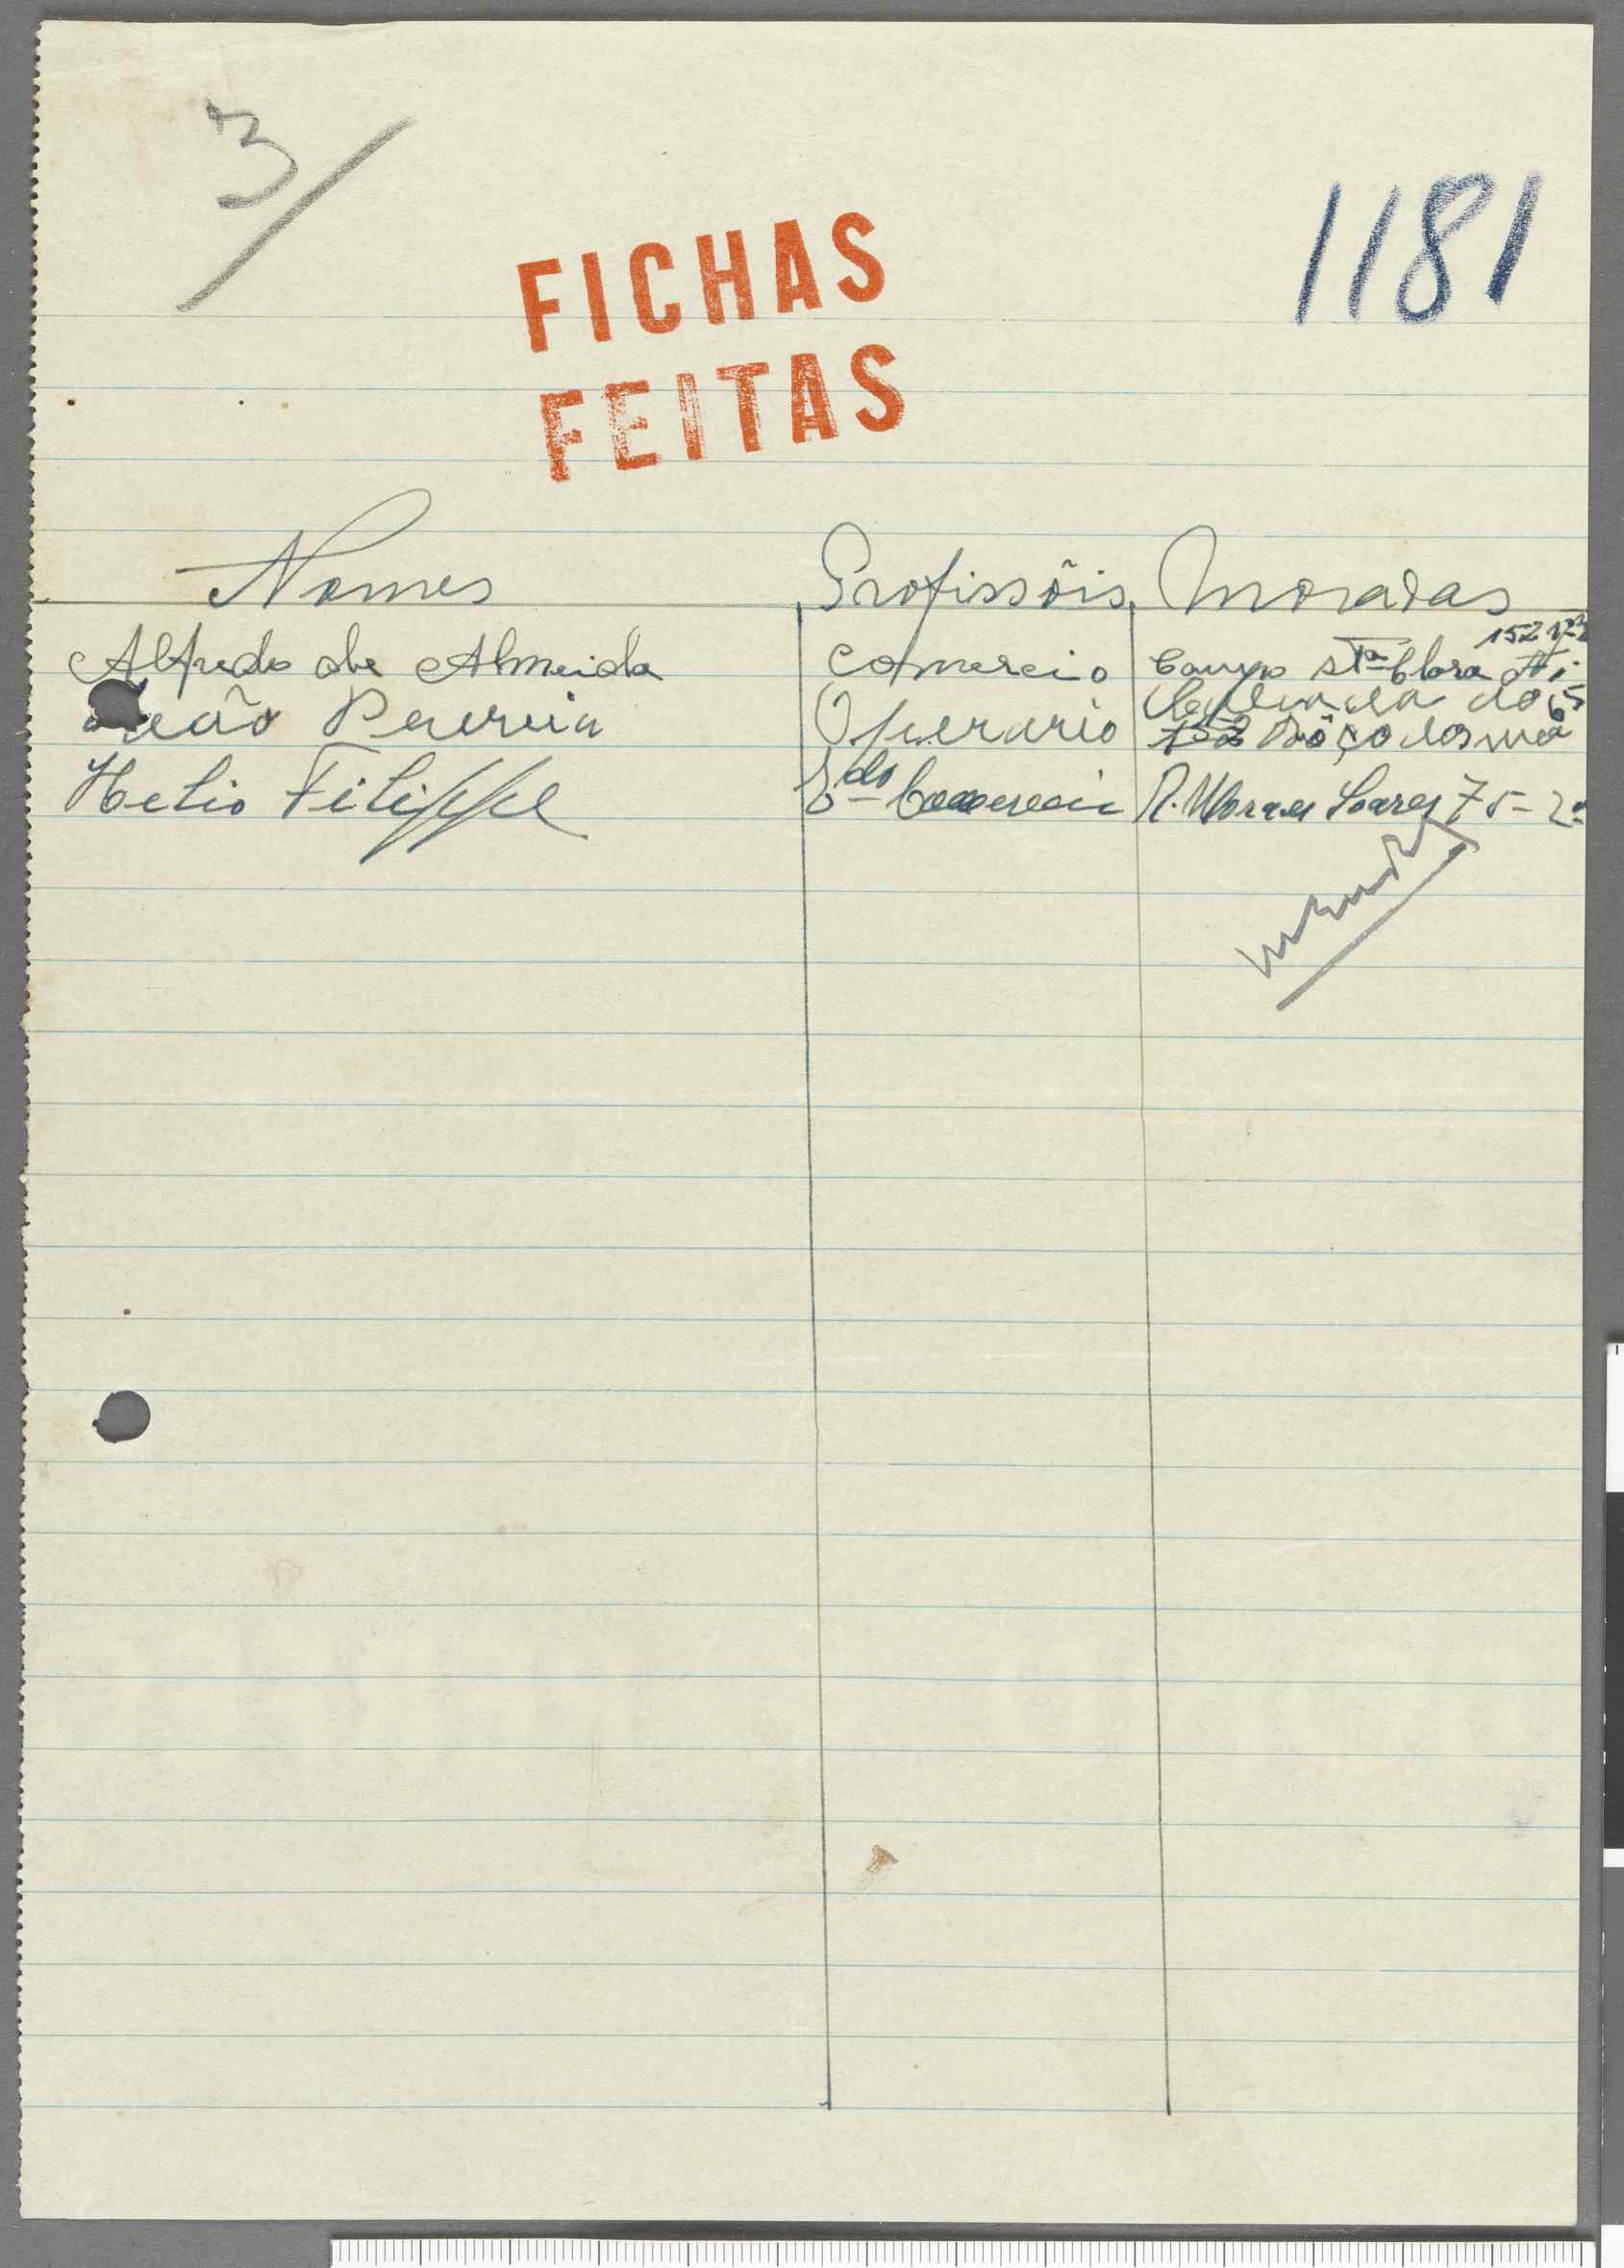 3
1181
FICHAS
FEITAS
Nomes Profissõis Moradas
Alfredo de Almeida Comercio Campo Sta Clara 152
eão Pereria Operario Calçada do Pôço dos
Helio Filippe E.do Comercio R. Moraes Soares 75-2º